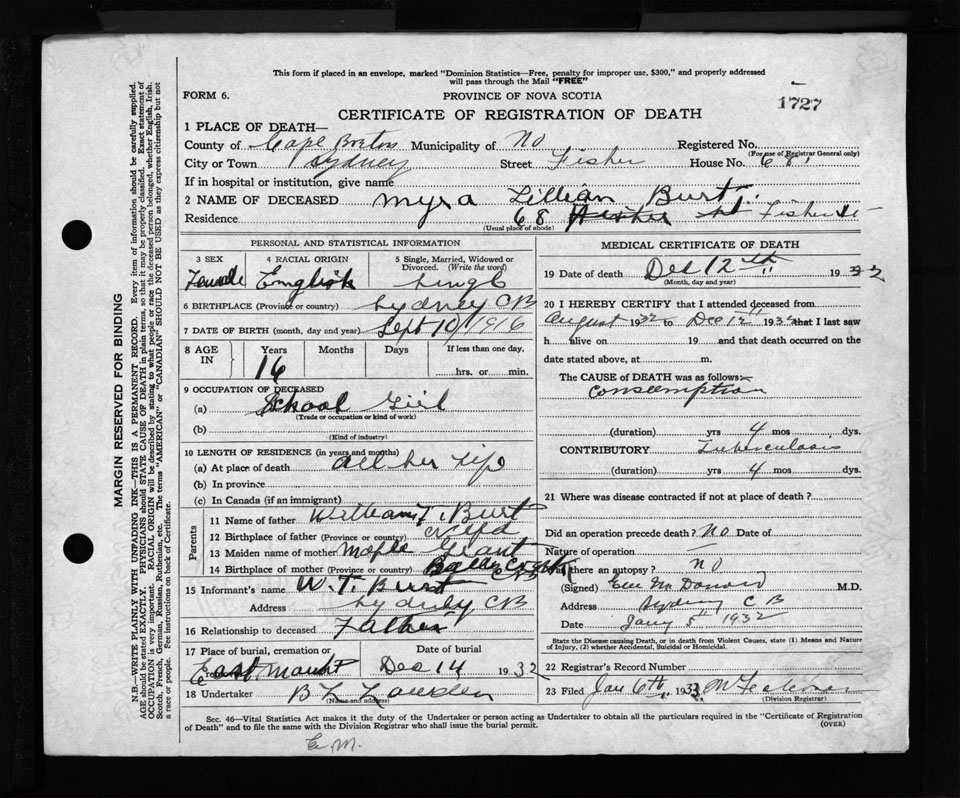 This form if placed in an envelope, marked "Dominion Statistics—Free, penalty for improper use, $300," and properly addressed
will pass through the Mail "FREE"
FORM 6.
PROVINCE OF NOVA SCOTIA
1727
CERTIFICATE OF REGISTRATION OF DEATH
1 PLACE OF DEATH—
County of Cape Breton Municipality of No Registered No.
(For use of Registrar General only)
City or Town Sydney Street Fisher House No. 68
If in hospital or institution, give name
2 NAME OF DECEASED Myra Lillian Burt
Residence 68 Fisher St
(Usual place of abode)
PERSONAL AND STATISTICAL INFORMATION
3 SEX 4 RACIAL ORIGIN 5 Single, Married, Widowed or Divorced. (Write the word)
Female English Single
6 BIRTHPLACE (Province or country) Sydney CB
7 DATE OF BIRTH (month, day and year) Sept 10 1916
8 AGE IN Years Months Days If less than one day,
16 hrs. or min.
9 OCCUPATION OF DECEASED
(a) School Girl
(Trade or occupation or kind of work)
(b)
(Kind of industry)
10 LENGTH OF RESIDENCE (in years and months)
(a) At place of death all her life
(b) In province
(c) In Canada (if an immigrant)
Parents
11 Name of father William T. Burt
12 Birthplace of father (Province or country) Nfld
13 Maiden name of mother Grant
14 Birthplace of mother (Province or country)
15 Informant's name W. T. Burt
Address Sydney CB
16 Relationship to deceased Father
17 Place of burial, cremation or Date of burial
East Mount Dec 14 1932
18 Undertaker B L
(Name and address)
MEDICAL CERTIFICATE OF DEATH
19 Date of death Dec 12th 1932
(Month, day and year)
20 I HEREBY CERTIFY that I attended deceased from
August 1932 to Dec 12 1932 that I last saw
h alive on 19 and that death occurred on the
date stated above, at m.
The CAUSE of DEATH was as follows:—
Consemption
(duration) yrs 4 mos dys.
CONTRIBUTORY Tuberculosis
(duration) yrs 4 mos dys.
21 Where was disease contracted if not at place of death?
Did an operation precede death? No Date of
Nature of operation
Was there an autopsy? No
(Signed) M.D.
Address Sydney C B
Date Jany 5th 1932
State the Disease causing Death, or in death from Violent Causes, state (1) Means and Nature
of Injury, (2) whether Accidental, Suicidal or Homicidal.
22 Registrar's Record Number
23 Filed Jan 6th 1933
(Division Registrar)
Sec. 46—Vital Statistics Act makes it the duty of the Undertaker or person acting as Undertaker to obtain all the particulars required in the "Certificate of Registration
of Death" and to file the same with the Division Registrar who shall issue the burial permit.
(OVER)
MARGIN RESERVED FOR BINDING
N.B.—WRITE PLAINLY WITH UNFADING INK—THIS IS A PERMANENT RECORD. Every item of information should be carefully supplied.
AGE should be stated EXACTLY. PHYSICIANS should STATE CAUSE OF DEATH in plain terms, so that it may be properly classified. Exact statement of
OCCUPATION is very important. RACIAL ORIGIN will be described by stating to what people or race the deceased person belonged, whether English, Irish,
Scotch, French, German, Russian, Ruthenian, etc. The terms "AMERICAN" or "CANADIAN" SHOULD NOT BE USED as they express citizenship but not
a race or people. See instructions on back of Certificate.